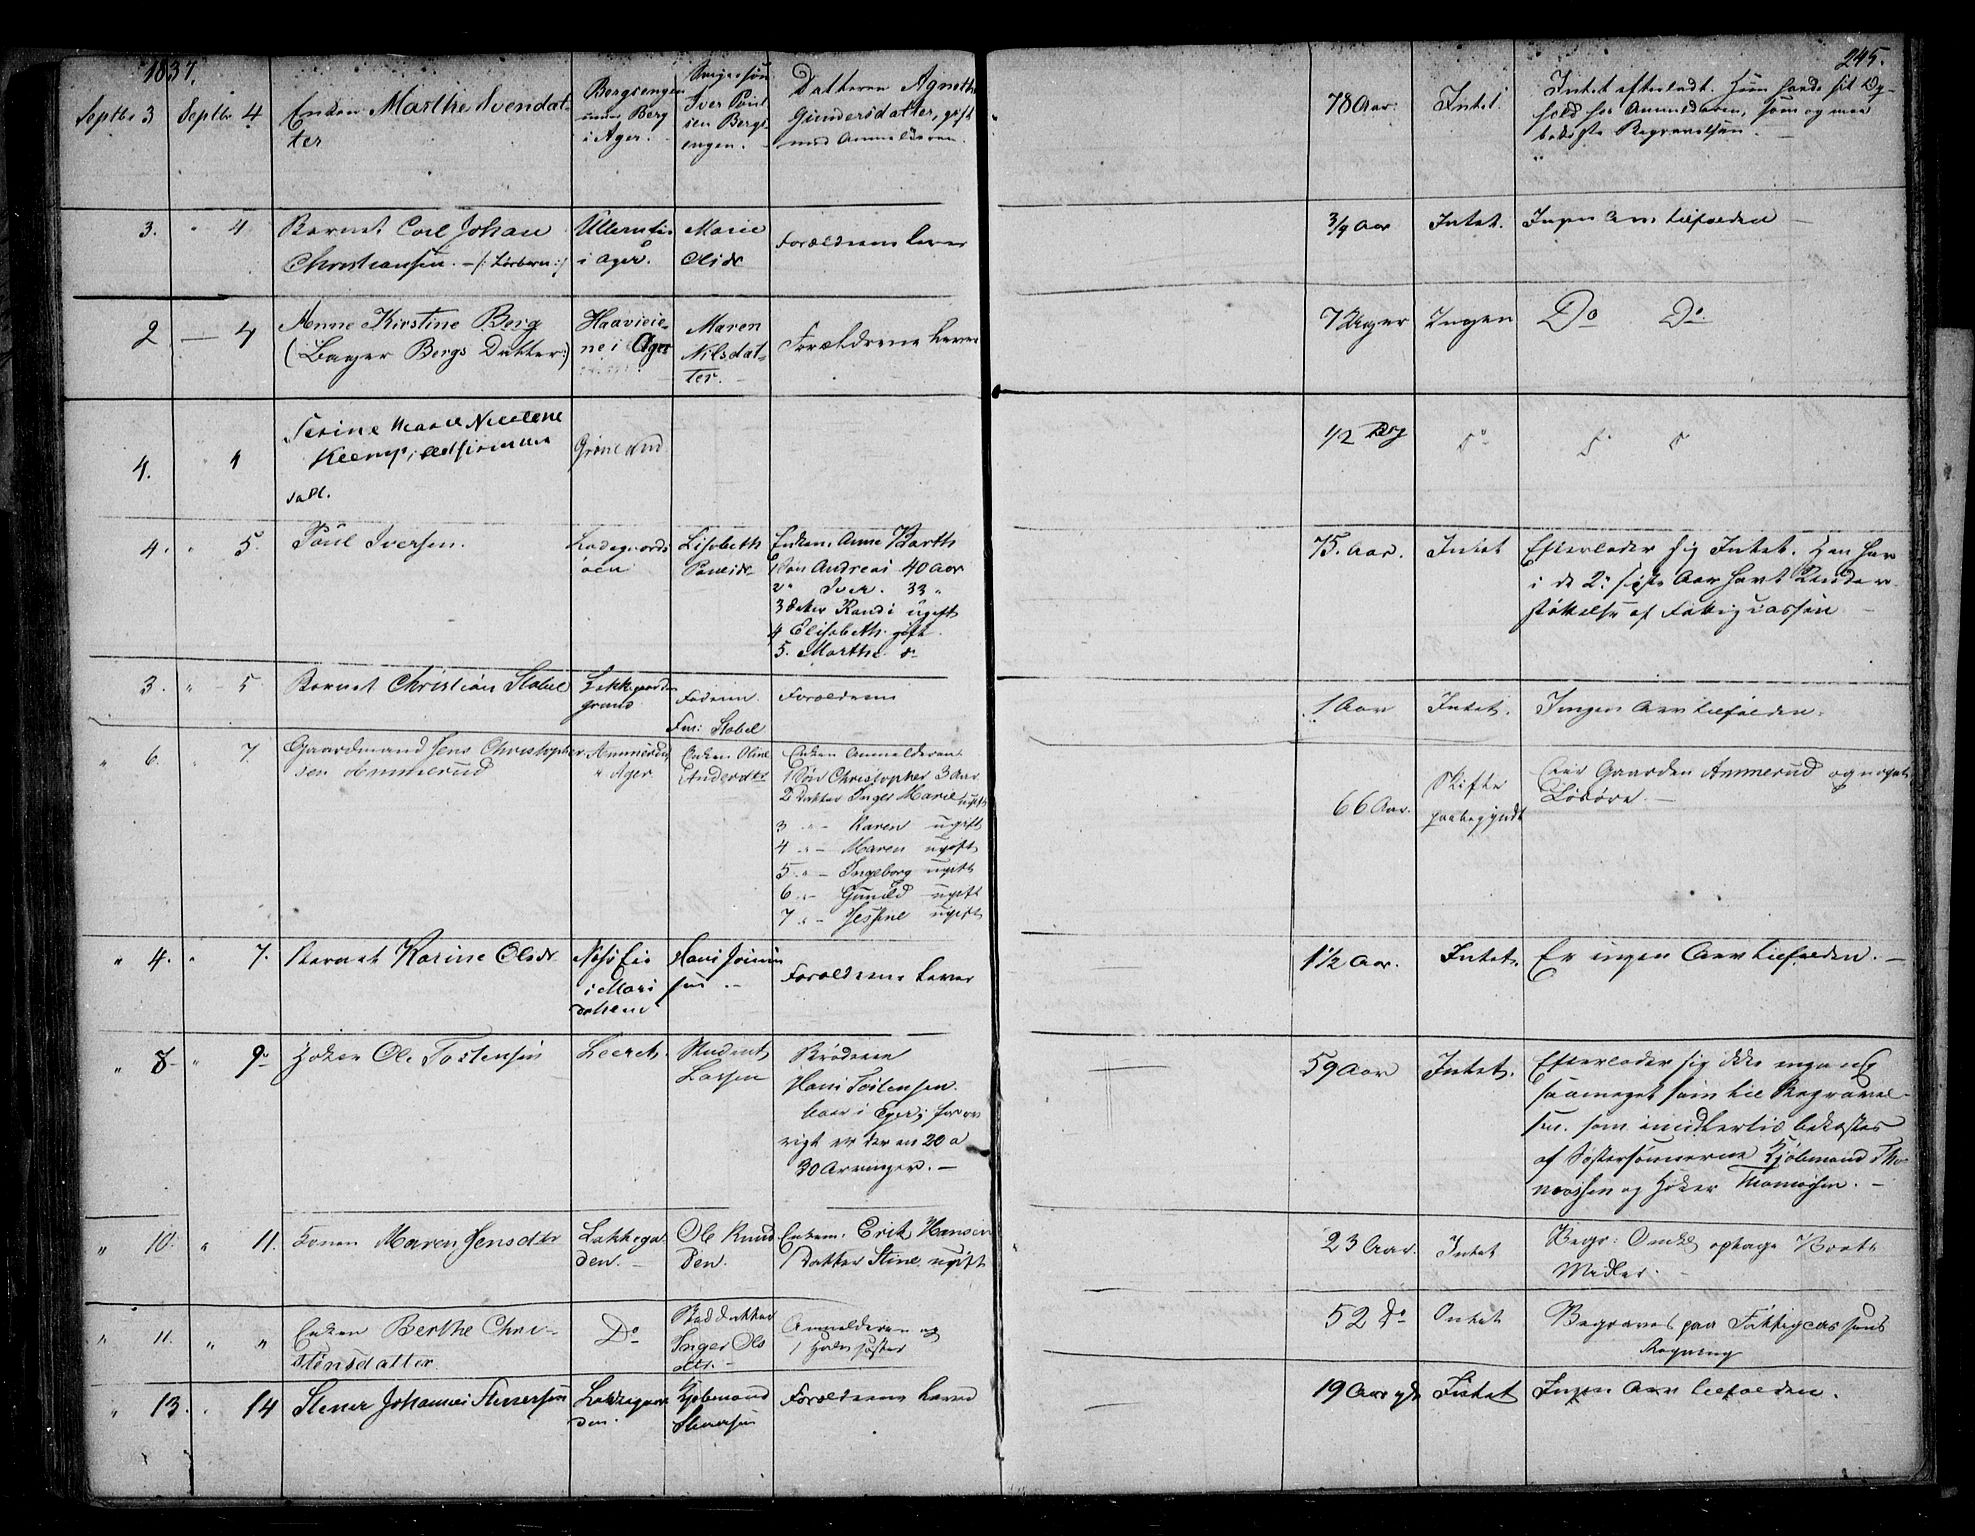 1837.
245.
Septbr 3 Septbr 4 Enken Marthe Svendat-
ter
Bergsengen
under Berg
i Ager.
Svigersøn
Iver Poul
sen Bergs
engen.
Datteren Agnethe
Gundersdatter, gift
med Anmelderen.
78 Aar. Intet. Intet efterladt. Hun havde sit Op-
hold hos Anmelderen, som og maa
bekoste Begravelsen.
3. " 4 Barnet Carl Johan
Christiansen. - /: Løsbarn :/
Ullernsie
i Ager.
Marie
Olsdr
Forældrene lever
3/4 Aar Intet. Ingen Arv tilfalden
2 — 4 Anne Kirstine Berg
(Bager Bergs Datter:)
Haavieie-
ne i Ager
Maren
Nilsdat-
ter.
Forældrene lever
7 Uger Ingen Do Do
4. 4
Kemp,
Grønland
1/2 Do
4. " 5. Poul Iversen.
Ladegaards
øen
Lisabeth
Poulsdr
Enken Anne Barth
1 Søn Andreas 40 Aar
2 " Iver. 33 "
3 Datter Randi ugift
4 Elisabeth gift
5. Marthe do
75. Aar. Intet Efterlader sig Intet. Han har
i de 2 sidste Aar havt Under-
støttelse af Fattigcassen
3. " 5 Barnet Christian Stabel
Lakkegaards
grund
Faderen
Stabel
Forældrene
1 Aar Intet. Ingen Arv tilfalden.
" 6. " 7. Gaardmand Jens Christopher
sen Ammerud
Ammerud
i Ager
Enken Oline
Andersdtr
Enken Anmelderen
1 Søn Christopher 3 Aar
2 Datter Inger Marie ugift
3 " - Karen ugift
4 " - Maren ugift
5 " - Ingeborg ugift
6 " - Gunild ugift
7 " - Jessine ugift
66 Aar. Skifte
paabegyndt
Eier Gaarden Ammerud og noget
Løsøre. -
" 4. " 7. Barnet Karine Olsdr
i Mari
dalen
Hans
sen
Forældrene lever
1 1/2 Aar. Intet. Er ingen Arv tilfalden. -
" 8 " 9 Høker Ole Tostensen
Leeret.
Student
Larsen
Broderen
Hans Tostensen
boer i Eger; forøv
rigt er der en 20 a
30 Arvinger. -
59 Aar Intet. Efterlader sig ikke engang
saameget som til Begravel-
sen, som imidlertid bekostes
af Søstersønnerne Kjøbmand Tho-
massen og Høker Thomassen. -
" 10. " 11. Konen Maren Jensdtr
Lakkega
den. -
Ole Knud
sen.
Enkem. Erik Hansen
1 Datter Stine ugift
23 Aar. Intet Begr: Omk optage Boets
Midler. -
" 11. " " Enken Berthe Chri-
stensdatter.
Do
Steddatter
Inger Ols
dtr. -
Anmelderen og
1 Halvsøster
52 Do Intet Begraves paa Fattigcassens
Regning
" 13. " 14 Stener Johannes Stenersen
Lakkegaar
den.
Kjøbmand
Stenersen
Forældrene lever
19 Aar Intet Ingen Arv tilfalden.